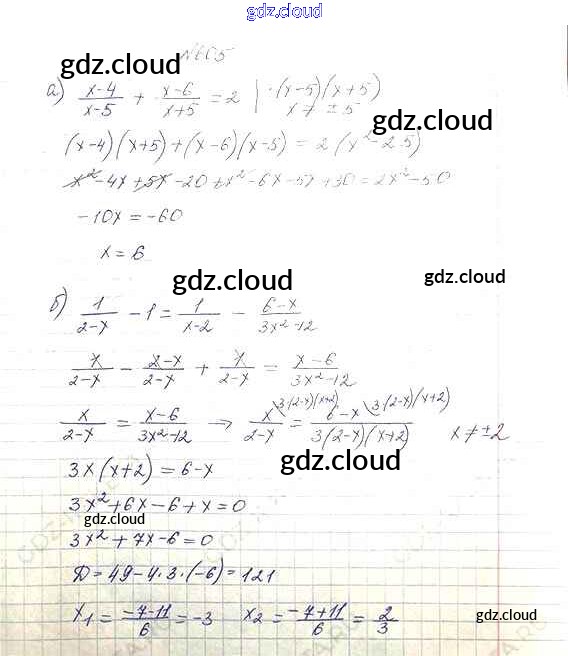 gdz.cloud
№605
gdz.cloud
а) (x-4)/(x-5) + (x-6)/(x+5) = 2 | ·(x-5)(x+5)
x ≠ ±5
gdz.cloud
(x-4)(x+5)+(x-6)(x-5) = 2(x²-25)
x²-4x+5x-20+x²-6x-5x+30=2x²-50
-10x=-60
x=6
gdz.cloud
gdz.cloud
б) 1/(2-x) - 1 = 1/(x-2) - (6-x)/(3x²-12)
1/(2-x) - (2-x)/(2-x) + 1/(2-x) = (x-6)/(3x²-12)
x/(2-x) = (x-6)/(3x²-12) → x\3(2-x)(x+2)/(2-x) = 6-x\3(2-x)(x+2)/(3(2-x)(x+2)) x≠±2
gdz.cloud
3x(x+2)=6-x
3x²+6x-6+x=0
gdz.cloud
3x²+7x-6=0
gdz.cloud
Д=49-4·3·(-6)=121
x₁=(-7-11)/6=-3 x₂=(-7+11)/6=2/3
gdz.cloud